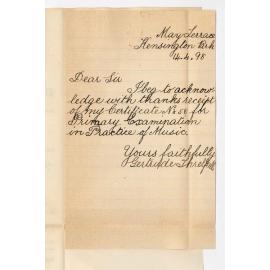 May Terrace
Kensington Park
14.4.98
Dear Sir
I beg to acknow
ledge with thanks receipt
of my Certificate No 58 for
Primary Examination
in Practice of Music.
Yours faithfully
Gertrude